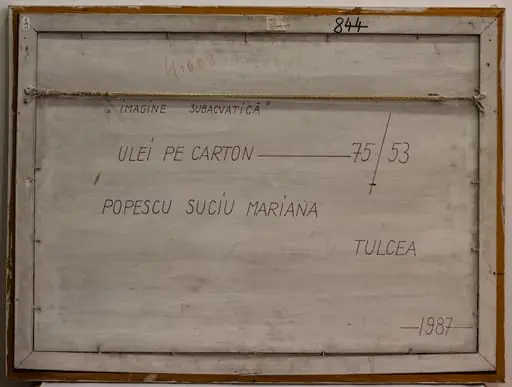 844
„IMAGINE SUBACVATICĂ"
ULEI PE CARTON — 75/53
POPESCU SUCIU MARIANA
TULCEA
—1987—